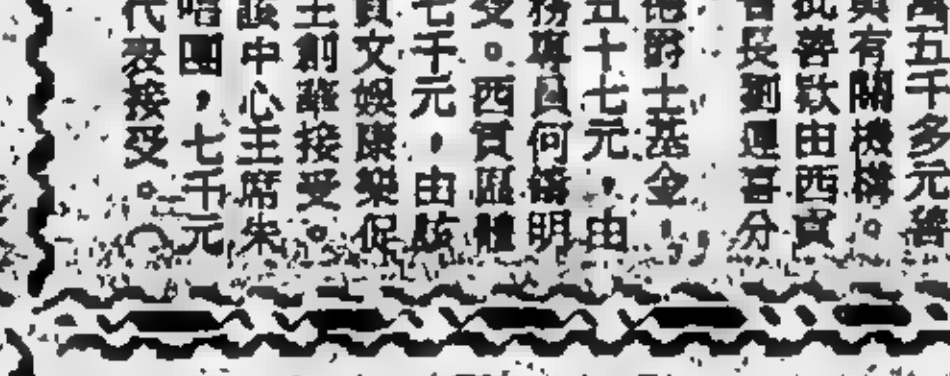 萬五千多元善
與有關機構。
善欵由西貢
長劉運喜分
德爵士基金，
五十七元，由
務專員何鑄明
受。西貢區體
七千元，由該
貢文娛康樂促
主創辦接受。
該中心主席朱
唱團，七千元
代表接受。